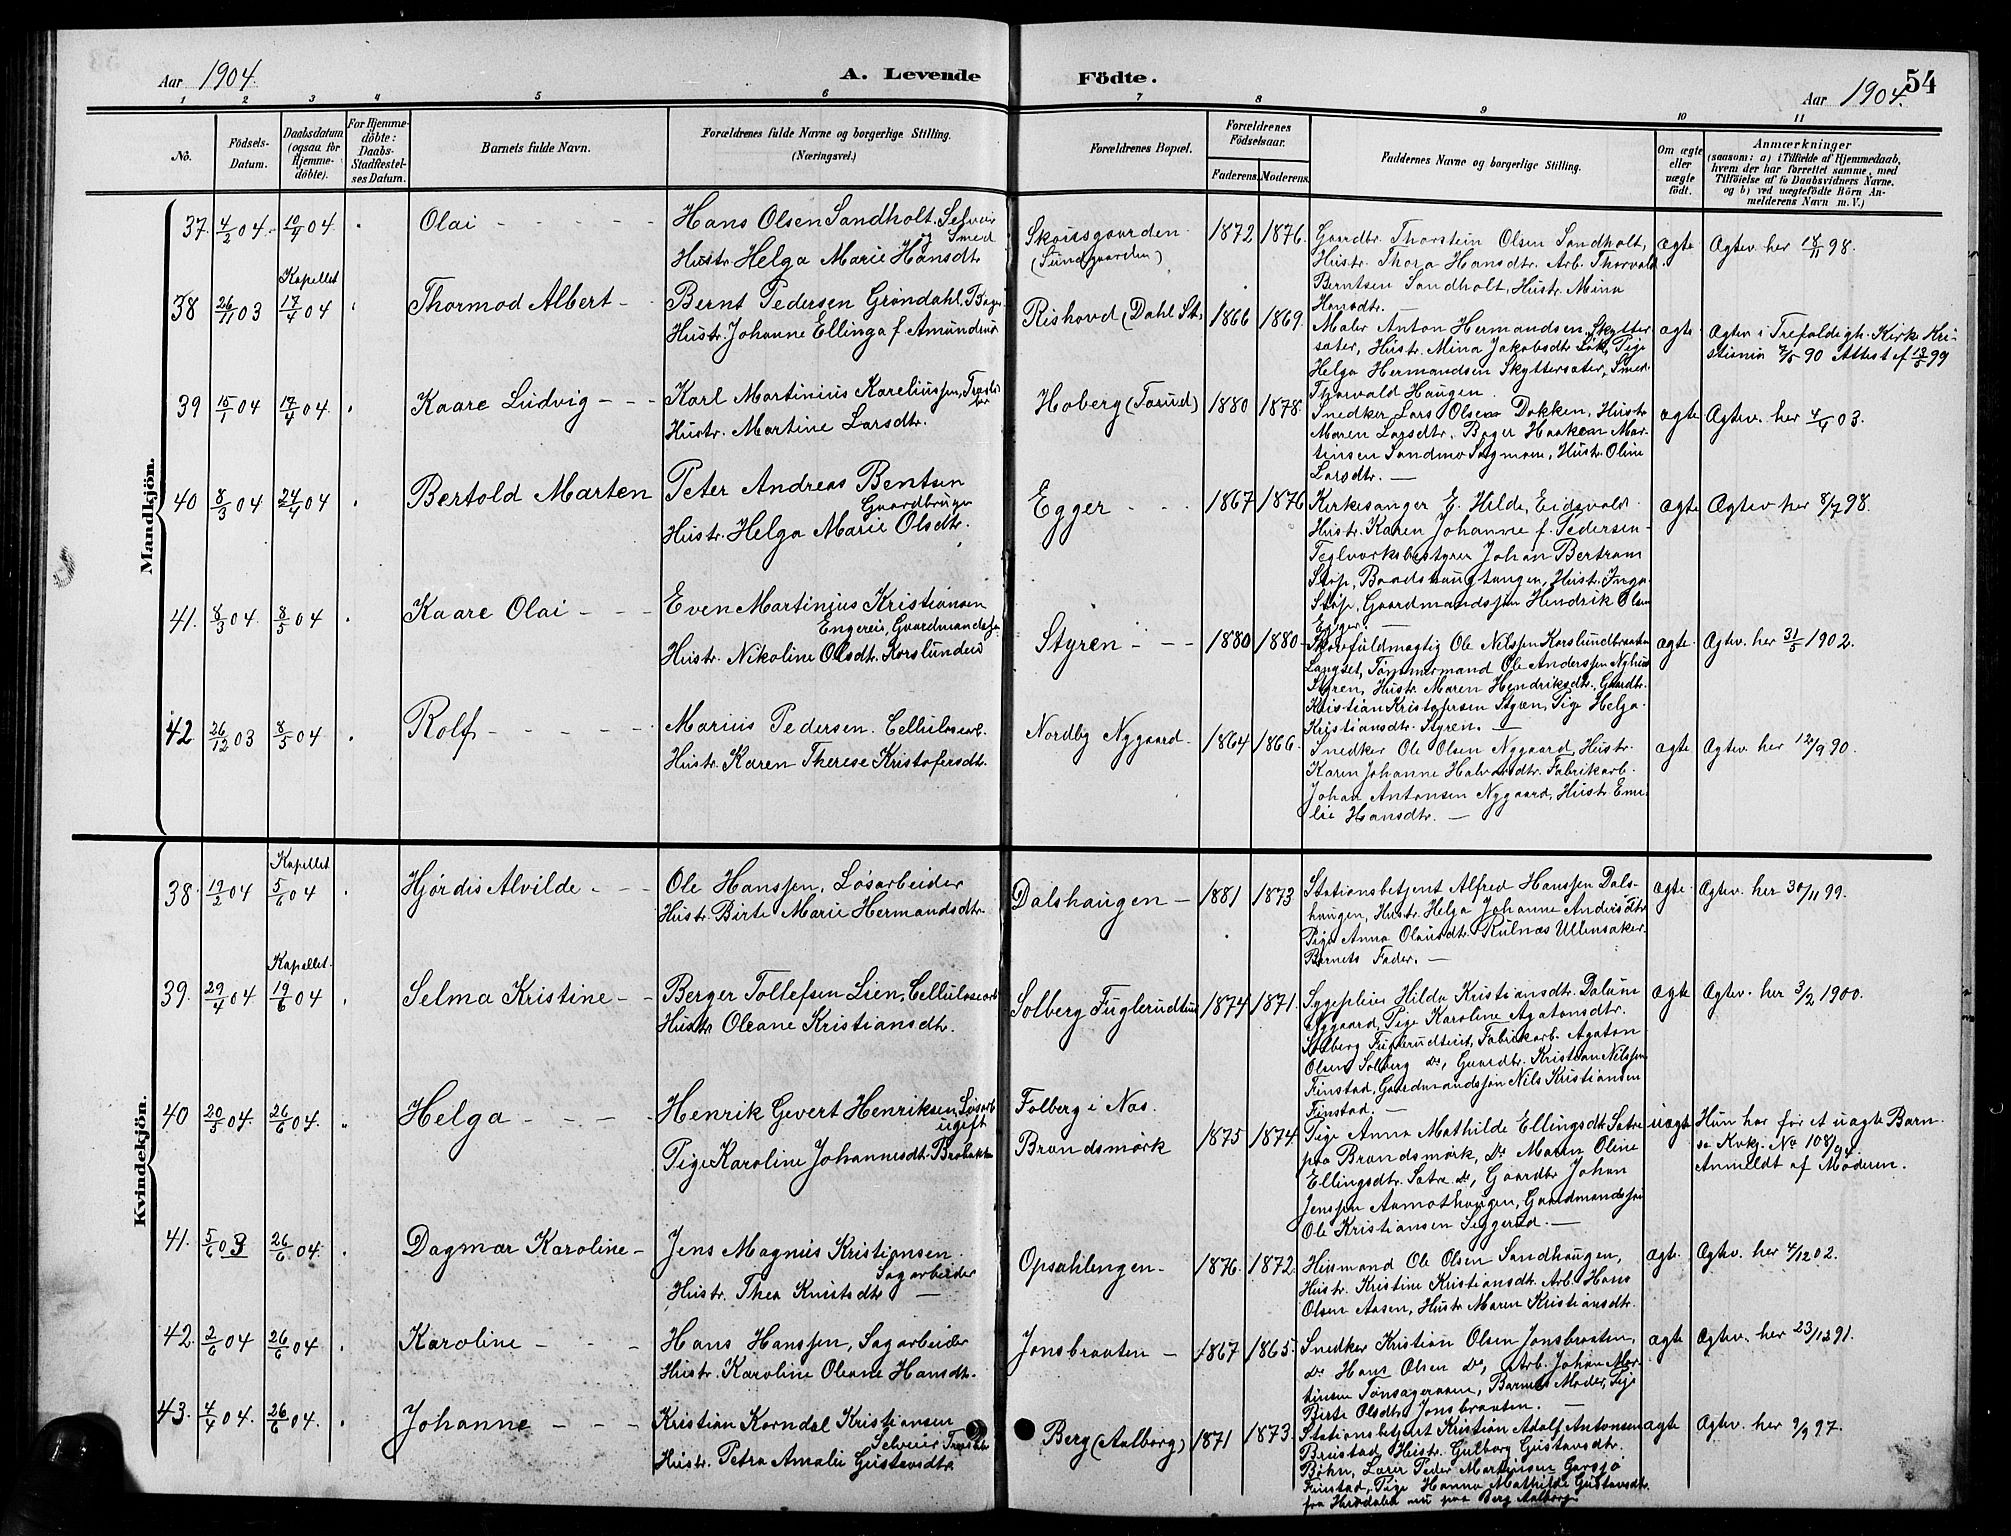 Aar 1904.
A. Levende Födte.
Aar 1904.
54
1 2 3 4 5 6 7 8 9 10 11
No.
Födsels-Datum.
Daabsdatum (ogsaa for Hjemme-döbte).
For Hjemme-döbte: Daabs-Stadfæstel-ses Datum.
Barnets fulde Navn.
Forældrenes fulde Navne og borgerlige Stilling.
(Næringsvei.)
Forældrenes Bopæl.
Forældrenes Födselsaar.
Faderens. Moderens.
Faddernes Navne og borgerlige Stilling.
Om ægte eller uægte födt.
Anmærkninger
(saasom: a) i Tilfælde af Hjemmedaab, hvem der har forrettet samme, med Tilföielse af to Daabsvidners Navne. og b) ved uægtefödte Börn An-melderens Navn m. V.)
Mandkjön.
37. 4/2 04. 10/4 04 Olai
Hans Olsen Sandholt. Selveier
og Smed
Hustr. Helga Marie Hansdtr
Skousgaarden
(Sundgaarden)
1872 1876.
Gaardbr. Thorstein Olsen Sandholt,
Hustr. Thora Hansdtr. Arb. Thorvald
Berntsen Sandholt, Hustr. Mina
Hansdtr.
ægte Ægtev. her 18/11 98.
38 26/11 03 Kapellet 17/4 04 Thormod Albert
Bernt Pedersen Grøndahl, Bager
Hustr. Johanne Ellinga f. Amundsen
Rishovd (Dahl St.) 1866 1869.
Maler Anton Hermandsen Skytter-
sæter, Hustr. Mina Jakobsdtr. Løk, Pige
Helga Hermandsen Skyttersæter, Smed
Thorvald Haugen.
ægte Ægtev i Trefoldigh. Kirk. Kri-
stiania 7/5 90 Attest af 13/5 99
39 15/1 04 17/4 04. Kaare Ludvig
Karl Martinius Kareliussen,
Hustr. Martine Larsdtr.
Hoberg (Tærud) 1880 1878.
Snedker Lars Olsen Dokken, Hustr
Maren Larsdtr. Bager Haakon Mar-
tinsen Sandmo Sagmoen, Hustr. Oline
Larsdtr.
ægte Ægtev. her 4/1 03.
40 8/3 04 24/4 04 Bertold Marten
Peter Andreas Bentsen
Gaardbruger
Hustr. Helga Marie Olsdtr.
Egger 1867 1876
Kirkesanger E. Hilde, Eidsvold
Hustr. Karen Johanne f. Pedersen
Teglværksbestyrer Johan Bertram
Støp, Baadshaugtangen, Hustr. Inga
Støp, Gaardmandssøn Hendrik Olsen
Egger.
ægte Ægtev her 8/7 98.
41. 8/3 04. 8/5 04 Kaare Olai
Even Martinius Kristiansen
Engerei, Gaardmandssøn
Hustr. Nikoline Olsdtr. Korslundeid
Styren 1880 1880
Skovfuldmægtig Ole Nilssen Korslundbraaten
Langset, Tømmermand Ole Anderssen Nyhus
Styren, Hustr. Maren Hendriksdtr. Gaardbr.
Kristian Kristofersen Styren, Pige Helga
Kristiansdtr. Styren.
ægte. Ægtev. her 31/5 1902.
42 26/12 03 8/5 04. Rolf
Marius Pedersen. Cellulosearb.
Hustr. Karen Therese Kristofersdtr.
Nordby Nygaard 1864 1866.
Snedker Ole Olsen Nygaard, Hustr.
Karen Johanne Halvorsdtr. Fabrikarb.
Johan Antonsen Nygaard, Hustr Eme-
lie Hansdtr.
ægte Ægtev. her 12/9 90.
Kvindekjön.
38. 19/2 04 Kapellet 5/6 04 Hjørdis Alvilde
Ole Hanssen, Løsarbeider
Hustr. Birte Marie Hermandsdtr.
Dalshaugen 1881 1873
Stationsbetjent Alfred Hanssen Dals-
haugen, Hustr. Helga Johanne Andersdtr
Pige Anna Olausdtr. Rulnæs Ullensaker.
Barnets Fader.
ægte. Ægtev. her 30/11 99.
39. 29/4 04 Kapellet. 19/6 04 Selma Kristine
Berger Tollefsen Lien, Cellulosearb
Hustr Oleane Kristiansdtr.
Solberg Fuglerudtuen 1874 1871.
Sygepleier Hilda Kristiansdtr. Dalune
Nygaard, Pige Karoline Agatonsdtr.
Solberg Fuglerudteiet, Fabrikarb. Agaton
Olsen Solberg do, Gaardbr. Kristian Nilssen
Finstad, Gaardmandssøn Nils Kristiansen
Finstad.
ægte Ægtev. her 3/2 1900.
40 20/5 04. 26/6 04. Helga
Henrik Gevert Henriksen, Løsarb
ugift
Pige Karoline Johannesdtr. Brobakken
Folberg i Næs.
Brandsmørk 1875 1874
Pige Anna Mathilde Ellingsdtr. Sætre
paa Brandsmørk, do Maren Oline
Ellingsdtr. Sætre do, Gaardbr Johan
Jenssen Aamothaugen, Gaardmandssøn
Ole Kristiansen Seggerud.
uægte Hun har før et uægte Barn
se Kvkj. No 108/94.
Anmeldt af Moderen.
41. 5/6 03 26/6 04. Dagmar Karoline
Jens Magnus Kristiansen
Sagarbeider
Hustr. Thea Knutsdtr
Opsahlengen 1876. 1872.
Husmand Ole Olsen Sandhaugen,
Hustr. Kristine Kristiansdtr. Arb. Hans
Olsen Aasen, Hustr Maren Kristiansdtr.
ægte. Ægtev. her 4/12 02.
42. 2/6 04 26/6 04 Karoline
Hans Hanssen, Sagarbeider
Hustr. Karoline Oleane Hansdtr.
Jonsbraaten 1867 1865.
Snedker Kristian Olsen Jonsbraaten,
do Hans Olsen do, Arb. Johan Mar-
tinsen Tønsageraaen, Barnets Moder, Pige
Birte Olsdtr. Jonsbraaten.
ægte Ægtev. her 23/12 91.
43. 4/4 04. 26/6 04. Johanne
Kristian Korndal Kristiansen
Selveier
Hustr. Petra Amalie Gustavsdtr.
Berg (Aalborg) 1871 1873.
Stationsbetjent Kristian Adolf Antonsen
Brustad, Hustr. Gulborg Gustavsdtr.
Bøhn, Lærer Peder Martinsen Garsjø
Finstad, Pige Hanna Mathilde Gustavsdtr.
fra Hurdalen nu paa Berg Aalborg.
ægte Ægtev. her 9/9 97.